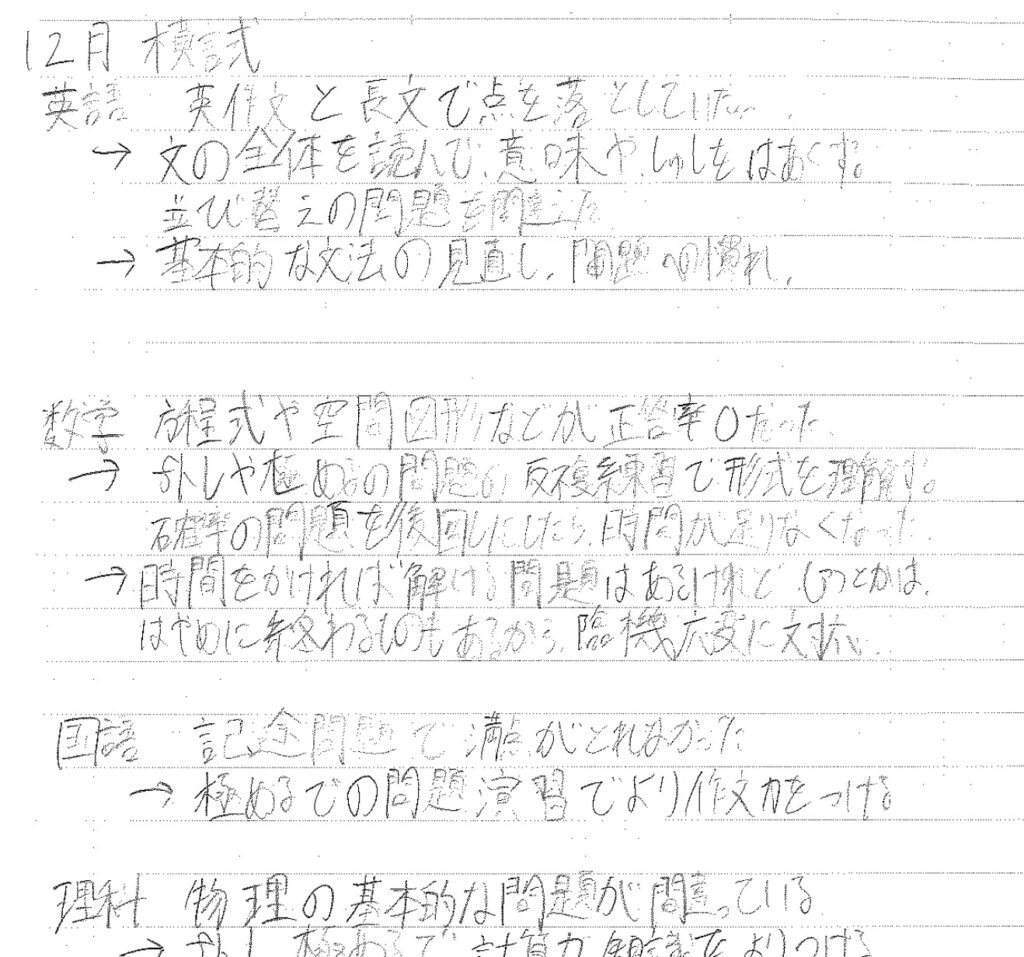 12月 模試
英語 英作文と長文で点を落としていた。
→ 文の全体を読んで、意味や、しゅしをはあくする。
並び替えの問題を間違えた
→ 基本的な文法の見直し、問題への慣れ。
数学 方程式や空間図形などが正答率0だった。
→ かしや極めるの問題の反複練習で形式を理解する。
確率の問題を後回しにしたら、時間が足りなくなった。
→ 時間をかければ解ける問題はあるけれど
はやめに終わるものもあるから、臨機応変に対応。
国語 記述問題で満点がとれなかった
→ 極めるでの問題演習でより作文力をつける
理科 物理の基本的な問題が間違っている
→ 極めるで計算力 をよりつける